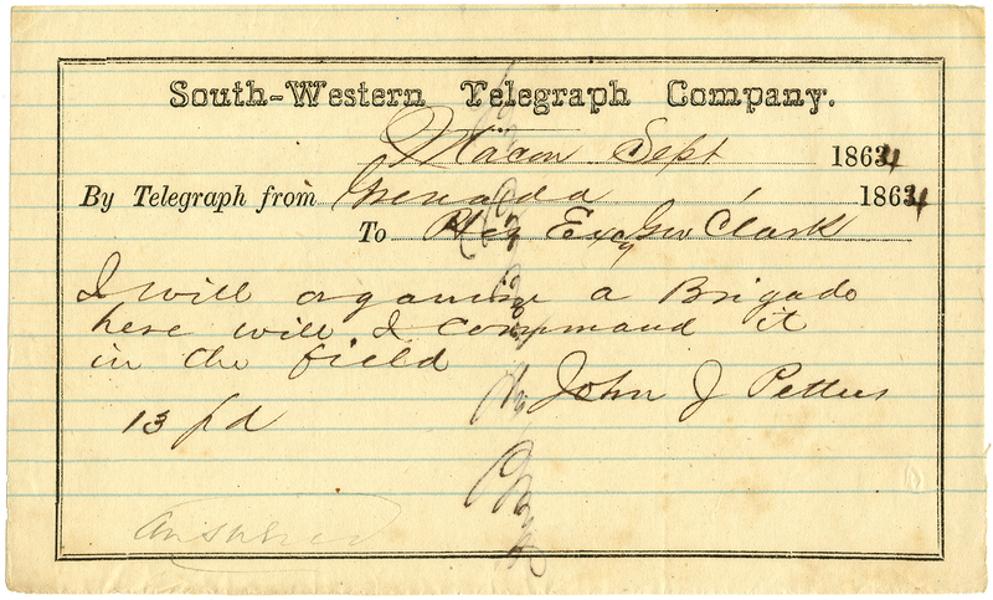 South-Western Telegraph Company.
Macon Sept 1864
By Telegraph from Grenada 1864
To His Excy Gov Clark
I will organize a Brigade
here will I command it
in the field
John J Pettus
13 pd
Answered